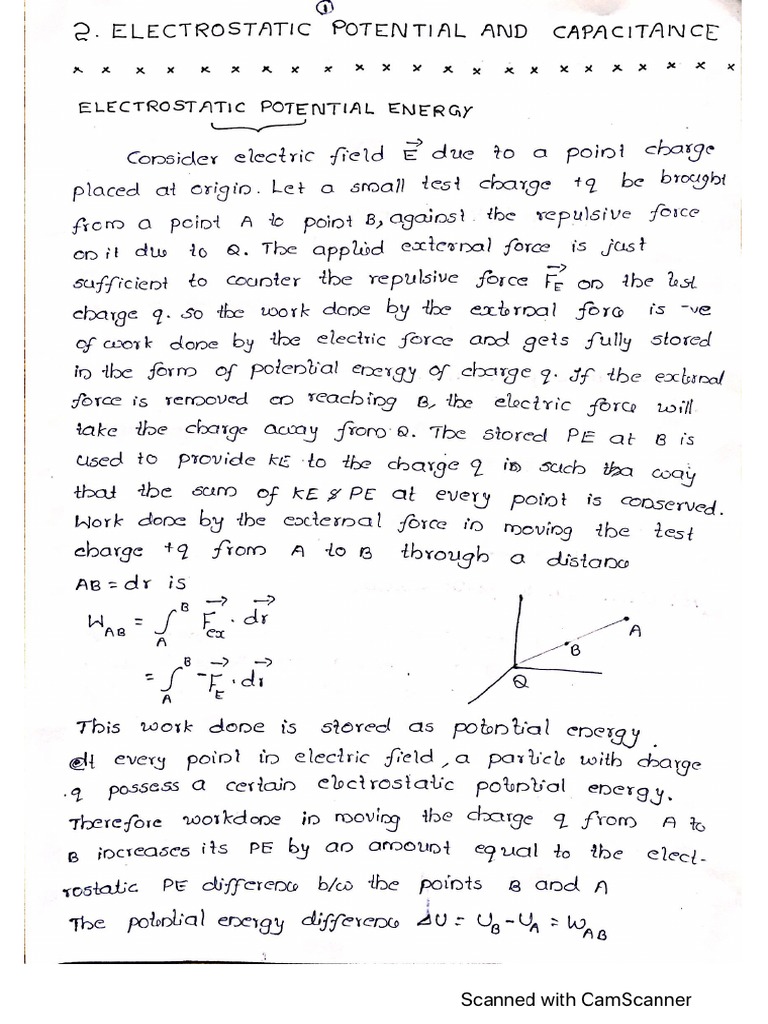 ①
2. ELECTROSTATIC POTENTIAL AND CAPACITANCE
x x x x x x x x x x x x x x x x x x x x x x x
ELECTROSTATIC POTENTIAL ENERGY
Consider electric field E⃗ due to a point charge
placed at origin. Let a small test charge +q be brought
from a point A to point B, against the repulsive force
on it due to Q. The applied external force is just
sufficient to counter the repulsive force F⃗_E on the test
charge q. So the work done by the external force is -ve
of work done by the electric force and gets fully stored
in the form of potential energy of charge q. If the external
force is removed on reaching B, the electric force will
take the charge away from Q. The stored PE at B is
used to provide KE to the charge q in such a way
that the sum of KE & PE at every point is conserved.
Work done by the external force in moving the test
charge +q from A to B through a distance
AB = dr is
W_AB = ∫_A^B F⃗_ex . dr⃗
= ∫_A^B -F⃗_E . dr⃗
A
B
Q
This work done is stored as potential energy.
At every point in electric field, a particle with charge
q possess a certain electrostatic potential energy.
Therefore workdone in moving the charge q from A to
B increases its PE by an amount equal to the elect-
rostatic PE difference b/w the points B and A
The potential energy difference ΔU = U_B - U_A = W_AB
Scanned with CamScanner